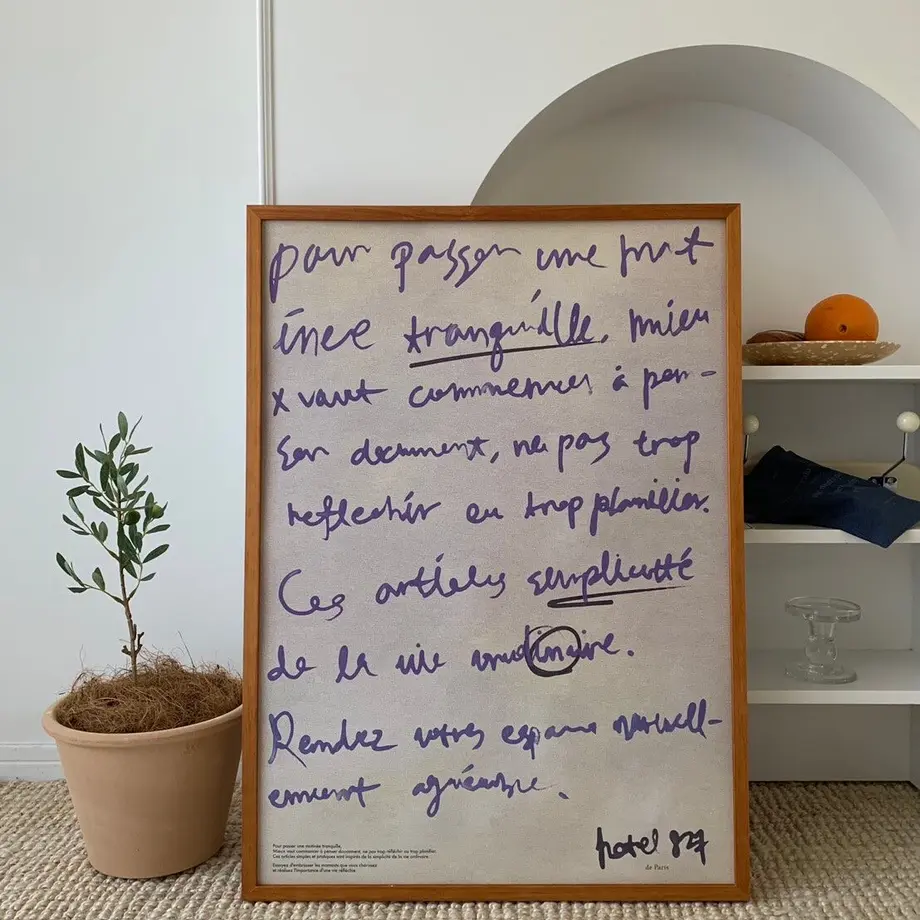 pour passer une mat
inée tranquille. Mieu
x vaut commencer à pen-
ser doucement, ne pas trop
reflechir ou trop planifier.
Ces articles simplicité
de la vie
Rendez votre espace naturell-
ement agréable.
hotel 827
de Paris
Pour passer une matinée tranquille,
Mieux vaut commencer à penser doucement, ne pas trop réfléchir ou trop planifier.
Ces articles simples et pratiques sont inspirés de la simplicité de la vie ordinaire.
Essayez d'embrasser les moments que vous chérissez
et réduire l'importance d'une vie réfléchie.